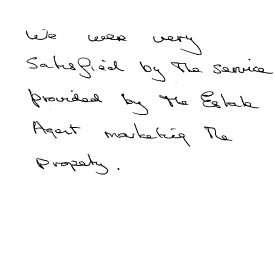 We were very
satisfied by the service
provided by the Estate
Agent marketing the
property.